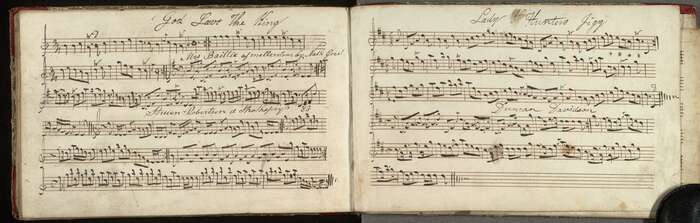 God Save The King
Mrs Baillie of mellerston by Nath Gow
Struan Robertson a Strathspey
Lady Hunters Jigg
Duncan Davidson